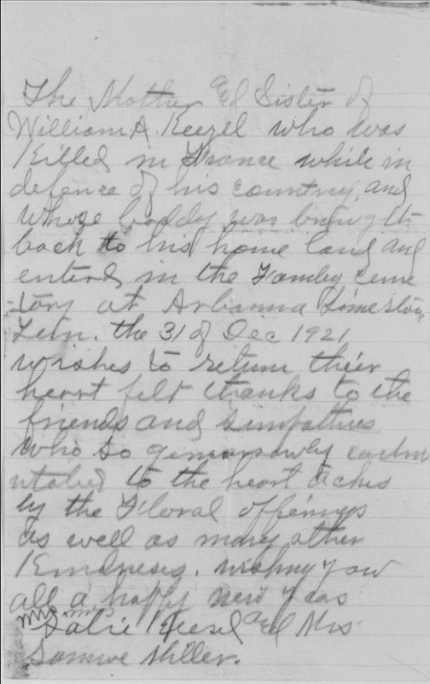 The Mother and Sister of
William A Keezel who was
Killed in France while in
defence of his country, and
whose boddy was brought
back to his home land and
enterd in the Family Ceme
-tery at Arbanna Limeston
Letn. the 31 of Dec 1921
wishes to return their
heart felt thanks to the
friends and simpathies
who so generously
to the heart aches
by the Floral offerings
as well as many other
Kindness. wishing you
all a happy new year
Mrs Salie Keezel and Mrs
Samue Miller.